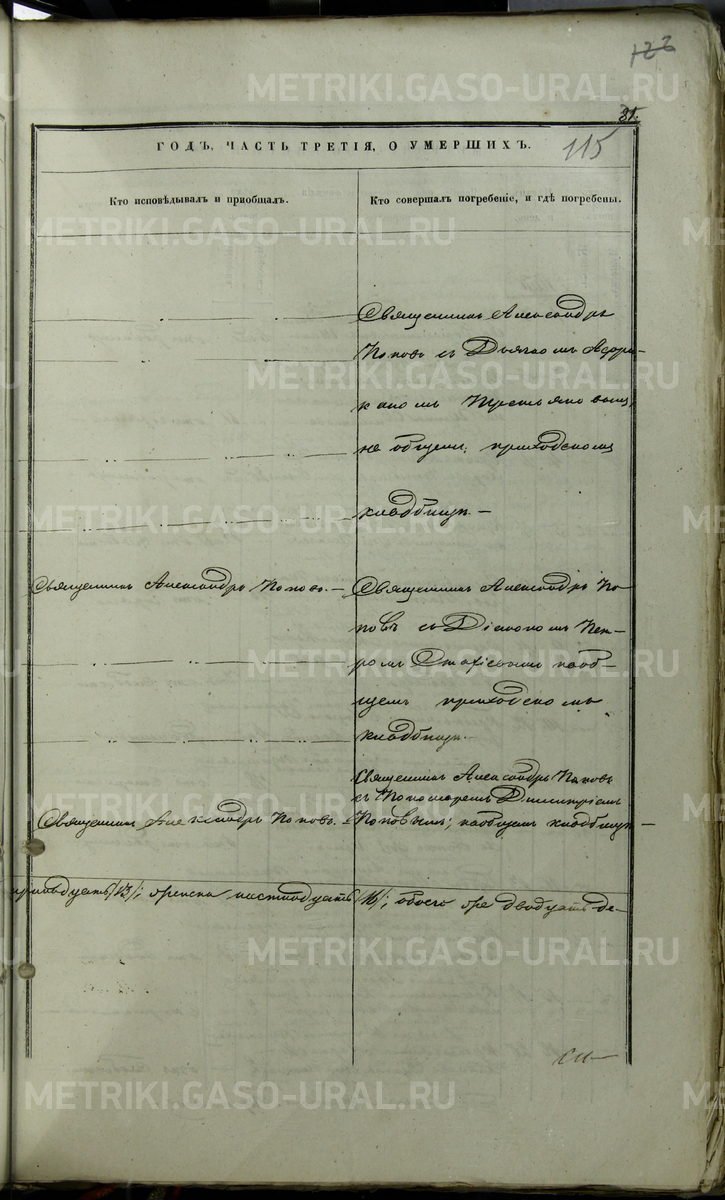 122
81.
115
ГОДЪ, ЧАСТЬ ТРЕТІЯ, О УМЕРШИХЪ.
Кто исповѣдывалъ и приобщалъ.
Кто совершалъ погребеніе, и гдѣ погребены.
Священникъ Александръ
Поповъ съ Дьячкомъ Афри-
каномъ Третьяковымъ,
на общемъ приходскомъ
кладбищѣ. —
Священникъ Александръ Поповъ. —
Священникъ Александръ По-
повъ съ Діакономъ Пет-
ромъ на об-
щемъ приходскомъ
кладбищѣ. —
Священникъ Александръ Поповъ.
Священникъ Александръ Поповъ
съ Пономаремъ Димитріемъ
Поповымъ; на общемъ кладбищѣ —
тринадцать /13/; женска шестнадцать /16/; обоего же двадцать де-
METRIKI.GASO-URAL.RU